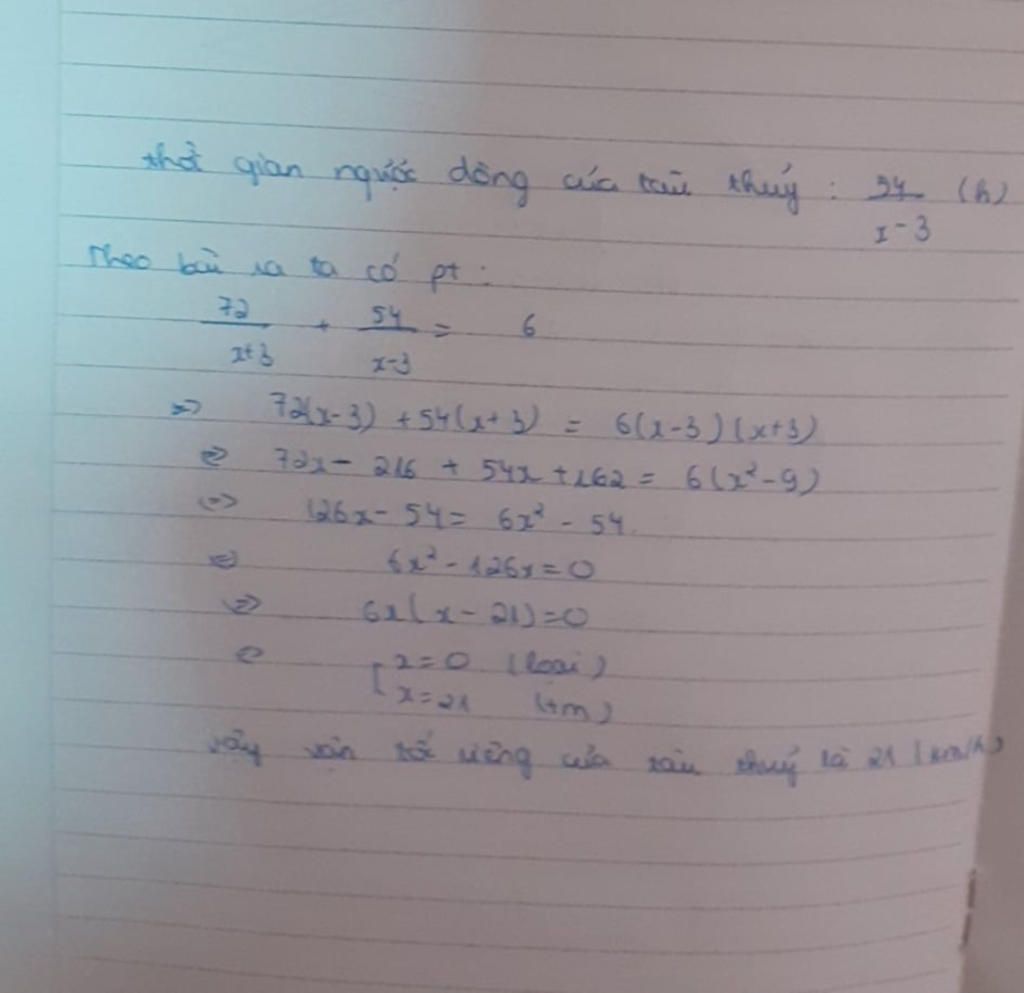 thời gian ngược dòng của tàu thuỷ : 54/(x-3) (h)
Theo bài ra ta có pt :
72/(x+3) + 54/(x-3) = 6
=> 72(x-3) + 54(x+3) = 6(x-3)(x+3)
<=> 72x - 216 + 54x + 162 = 6(x² - 9)
<=> 126x - 54 = 6x² - 54
<=> 6x² - 126x = 0
<=> 6x(x - 21) = 0
<=> [ x = 0 (loại)
x = 21 (tm)
vậy vận tốc riêng của tàu thuỷ là 21 (km/h)